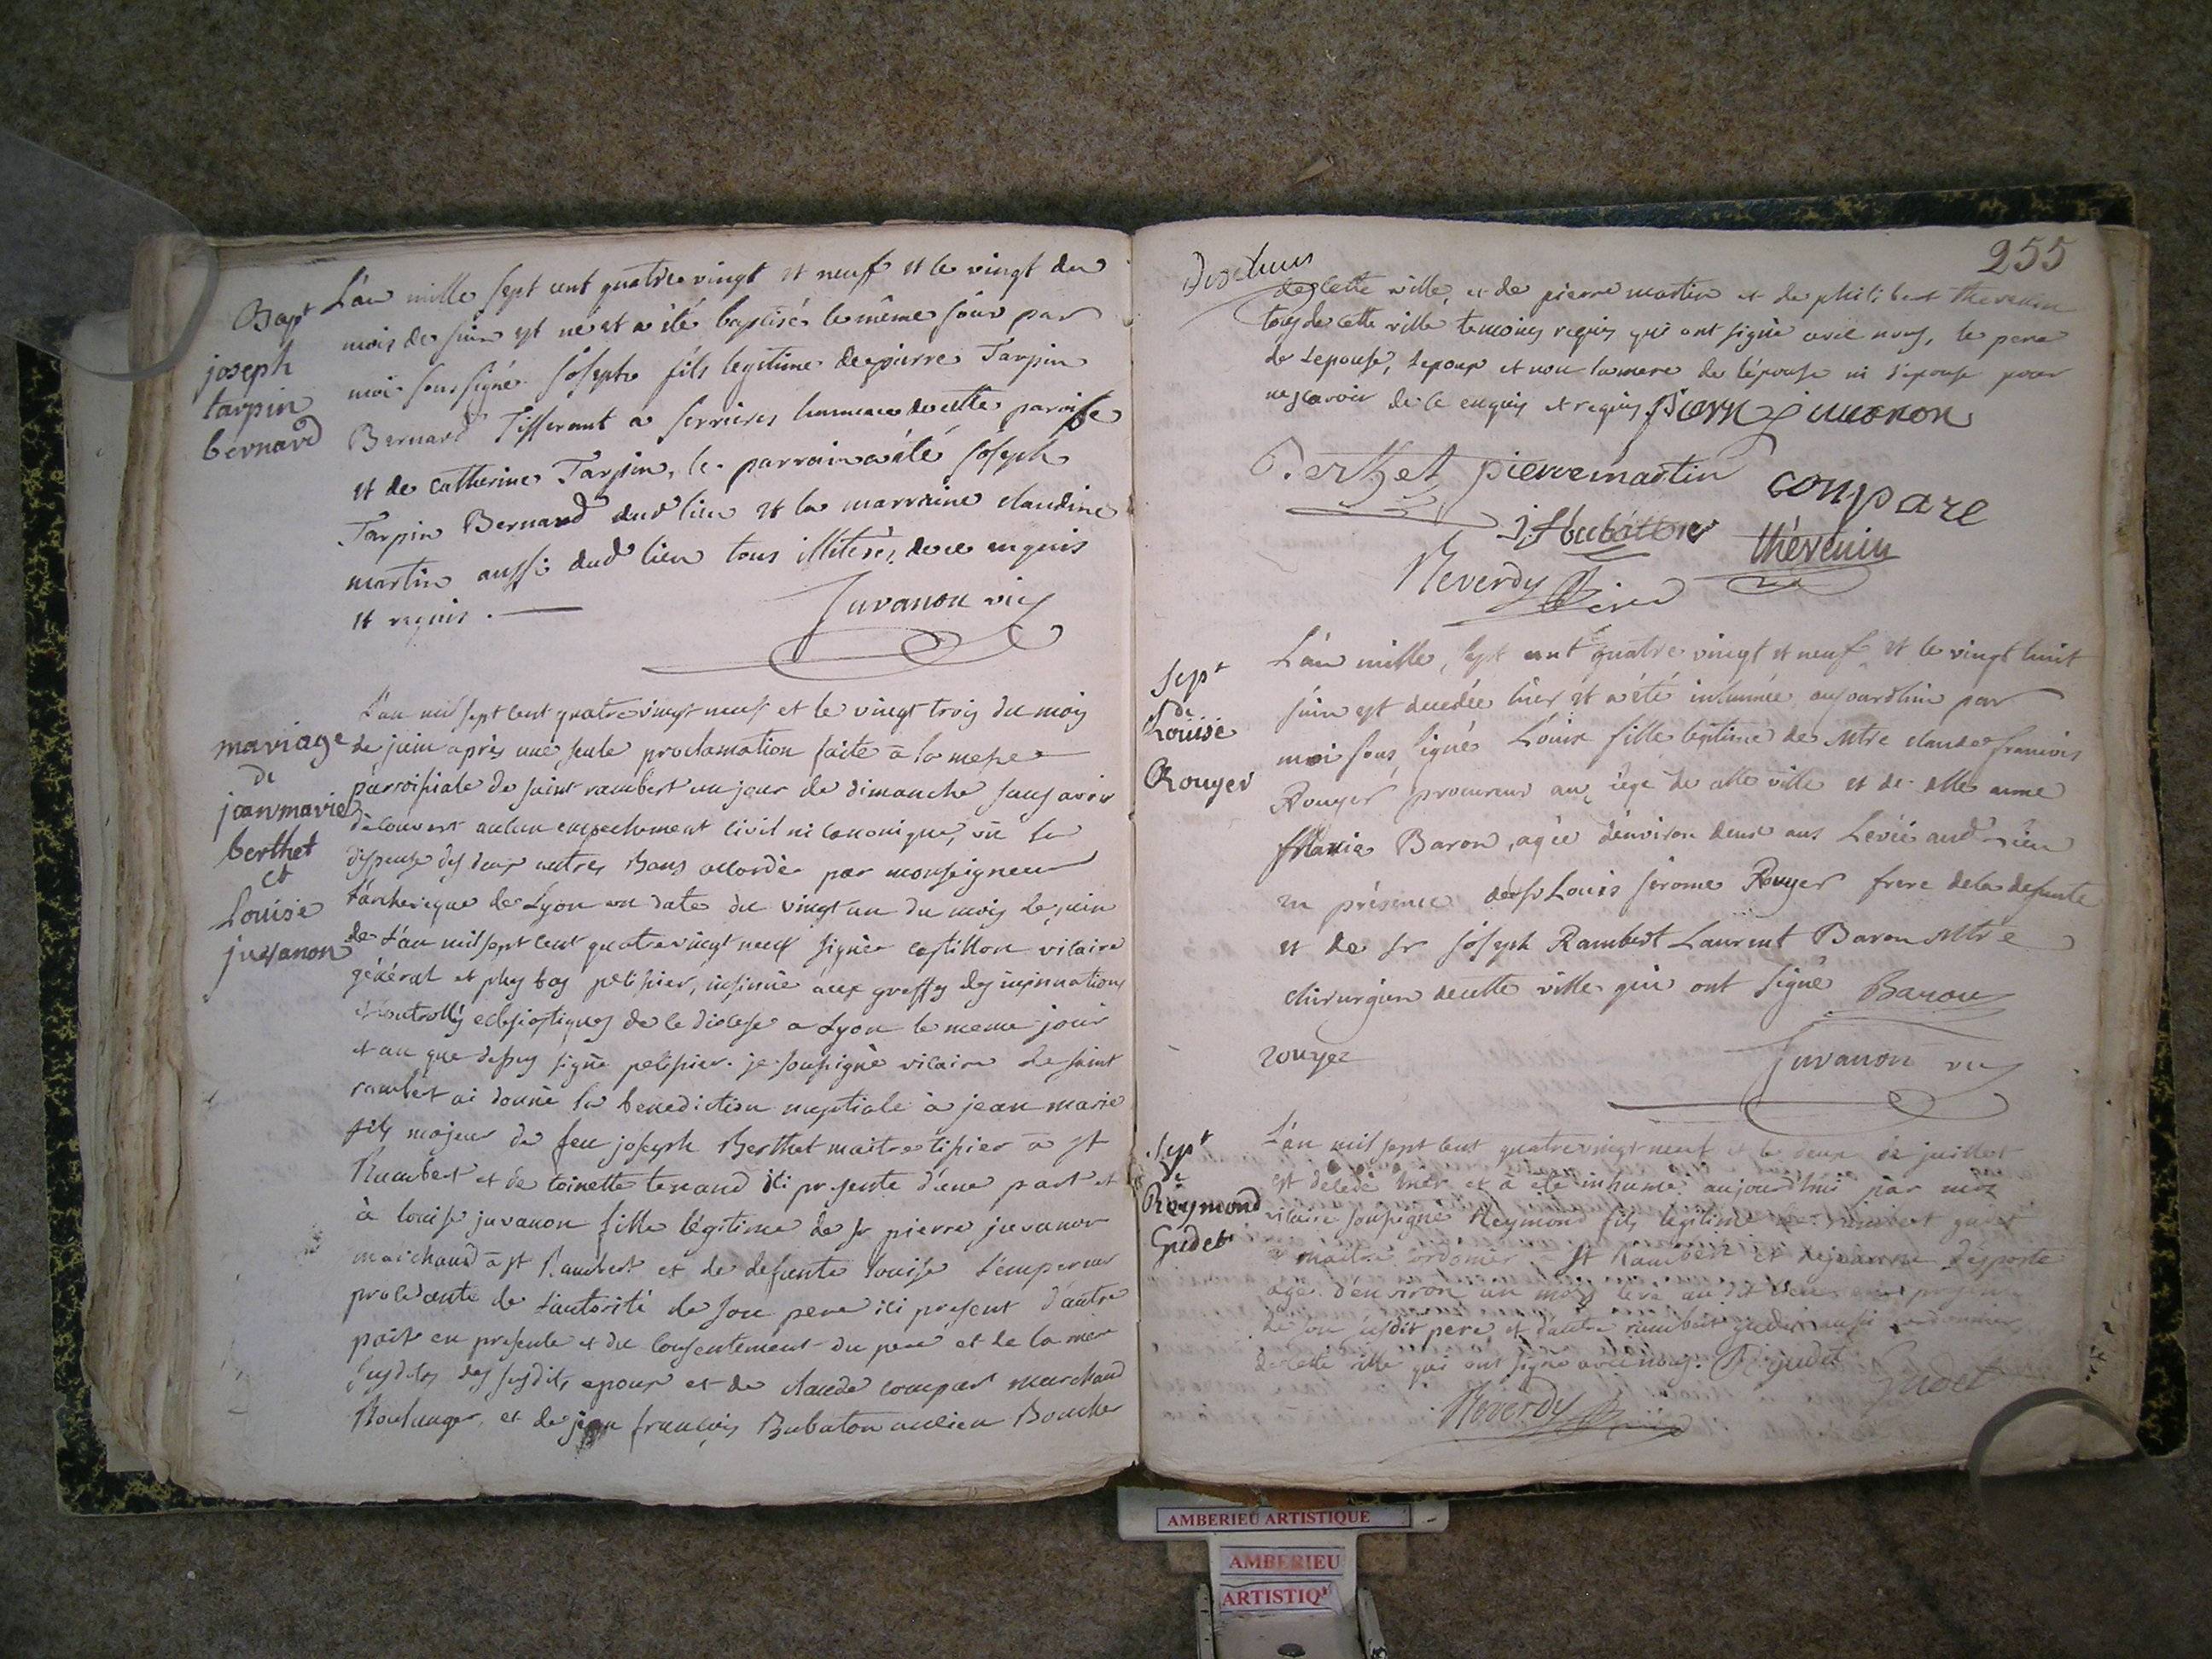 Bapt
joseph
tarpin
bernard
L'an mille sept cent quatre vingt et neuf et le vingt du
mois de juin est ne et a été baptisé le même jour par
moi soussigné joseph fils legitime de pierre Tarpin
Bernard Tisserant a serrieres hameau de cette paroisse
et de catherine Tarpin, le parrain a été joseph
Tarpin Bernard dud lieu et la marraine claudine
martin aussi dud lieu tous illiterés, de ce enquis
et requis.
Juvanon vic
mariage
de
jean marie
berthet
et
Louise
juvanon
L'an mil sept cent quatre vingt neuf et le vingt trois du mois
de juin après une seule proclamation faite à la messe
parroissiale de saint rambert un jour de dimanche sans avoir
découvert aucun empechement civil ni canonique, vu la
dispense des deux autres Bans accordée par monseigneur
l'archeveque de Lyon en date du vingt un du mois de juin
de l'an mil sept cent quatre vingt neuf signée castillon vicaire
général et plus bas pelissier, insinué aux greffes des insinuations
et controlles eclesiastiques de ce diocese a Lyon le meme jour
et an que dessus signé pelissier. je soussigné vicaire de saint
rambert ai donné la benediction nuptiale à jean marie
fils majeur de feu joseph Berthet maitre tissier à st
Rambert et de toinette tenand ici presente d'une part et
à louise juvanon fille légitime de sr pierre juvanon
marchand à st Rambert et de defunte louise Lempereur
procedante de l'autorité de son pere ici present d'autre
part en presente et du consentement du pere et de la mere
susdits des susdits epoux et de claude compare marchand
Boulanger, et de jean françois Babaton ancien Boucher
255
de cette ville, et de pierre martin et de philibert thevenin
tous de cette ville temoins requis qui ont signé avec nous, le pere
de l'epouse, l'epoux et non la mere de l'épouse ni l'epouse pour
ne scavoir de ce enquis et requis pierre juvanon
Berthet pierre martin compare
thévenin
Reverdy vic
Sept
de
Louise
Rouyer
L'an mille sept cent quatre vingt et neuf et le vingt huit
juin est decedée hier et a été inhumée aujourdhui par
moi sous signé Louise fille légitime de Mtre claude francois
Rouyer procureur au siege de cette ville et de delle anne
Marie Baron, agée d'environ deux ans Levée aud lieu
en présence de sr Louis jerome Rouyer frere de la defunte
et de sr joseph Rambert Laurent Baron Mtre
chirurgien de cette ville qui ont signé Baron
rouyer
Juvanon vic
Sept
de
Reymond
Gudet
L'an mil sept cent quatre vingt neuf et le deux de juillet
est décédé hier et a été inhumé aujourd'hui par moi
vicaire soussigné Reymond fils legitime de rambert gudet
maitre cordonier à st Rambert et de jeanne Desporte
agé d'environ un mois levé au dit lieu en presence
de son susdit pere et d'autre rambert gudet aussi cordonnier
de cette ville qui ont signé avec nous. R gudet
Gudet
Reverdy vic
AMBERIEU ARTISTIQUE
AMBERIEU
ARTISTIQ